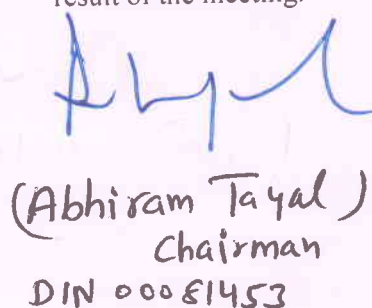 result of the meeting.
(Abhiram Tayal)
Chairman
DIN 00081453